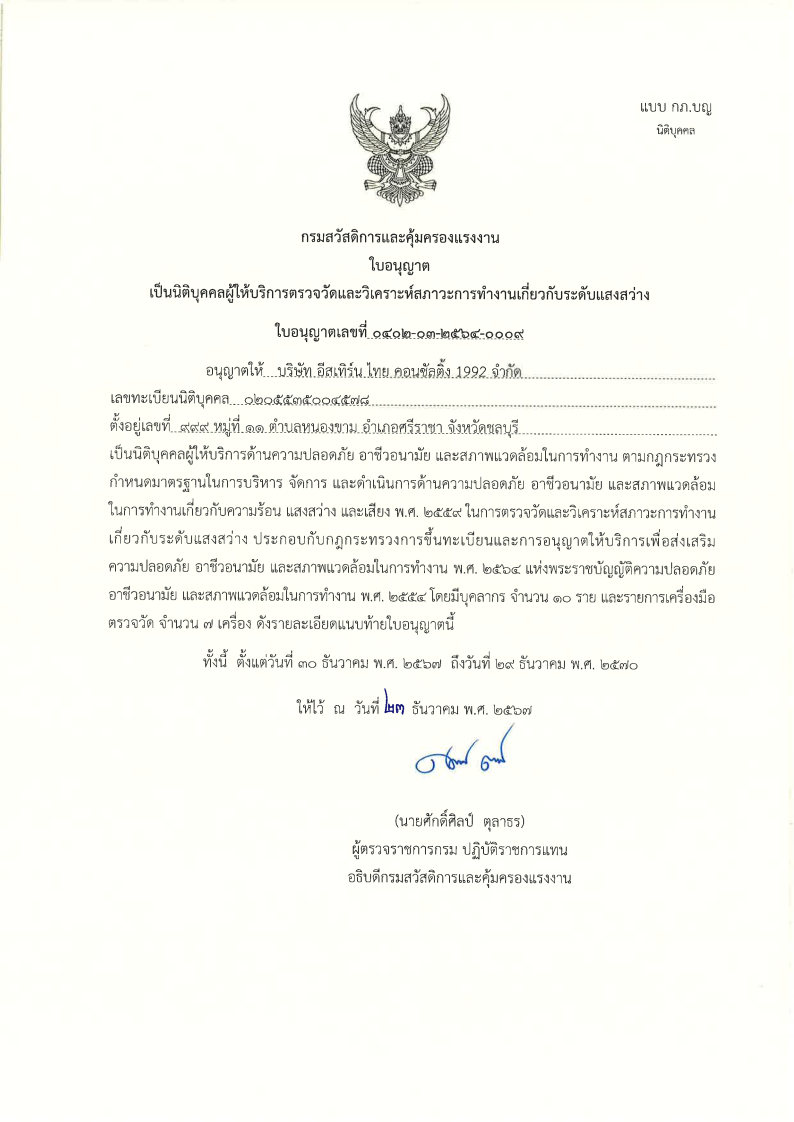 แบบ กภ.บญ
นิติบุคคล
กรมสวัสดิการและคุ้มครองแรงงาน
ใบอนุญาต
เป็นนิติบุคคลผู้ให้บริการตรวจวัดและวิเคราะห์สภาวะการทำงานเกี่ยวกับระดับแสงสว่าง
ใบอนุญาตเลขที่ ๐๔๐๒-๐๓-๒๕๖๔-๐๐๐๙
อนุญาตให้ บริษัท อีสเทิร์น ไทย คอนซัลติ้ง 1992 จำกัด
เลขทะเบียนนิติบุคคล ๐๒๐๕๕๓๕๐๐๔๕๗๘
ตั้งอยู่เลขที่ ๙๙๙ หมู่ที่ ๑๑ ตำบลหนองขาม อำเภอศรีราชา จังหวัดชลบุรี
เป็นนิติบุคคลผู้ให้บริการด้านความปลอดภัย อาชีวอนามัย และสภาพแวดล้อมในการทำงาน ตามกฎกระทรวง
กำหนดมาตรฐานในการบริหาร จัดการ และดำเนินการด้านความปลอดภัย อาชีวอนามัย และสภาพแวดล้อม
ในการทำงานเกี่ยวกับความร้อน แสงสว่าง และเสียง พ.ศ. ๒๕๕๙ ในการตรวจวัดและวิเคราะห์สภาวะการทำงาน
เกี่ยวกับระดับแสงสว่าง ประกอบกับกฎกระทรวงการขึ้นทะเบียนและการอนุญาตให้บริการเพื่อส่งเสริม
ความปลอดภัย อาชีวอนามัย และสภาพแวดล้อมในการทำงาน พ.ศ. ๒๕๖๔ แห่งพระราชบัญญัติความปลอดภัย
อาชีวอนามัย และสภาพแวดล้อมในการทำงาน พ.ศ. ๒๕๕๔ โดยมีบุคลากร จำนวน ๑๐ ราย และรายการเครื่องมือ
ตรวจวัด จำนวน ๗ เครื่อง ดังรายละเอียดแนบท้ายใบอนุญาตนี้
ทั้งนี้ ตั้งแต่วันที่ ๓๐ ธันวาคม พ.ศ. ๒๕๖๗ ถึงวันที่ ๒๙ ธันวาคม พ.ศ. ๒๕๗๐
ให้ไว้ ณ วันที่ ๒๓ ธันวาคม พ.ศ. ๒๕๖๗
(นายศักดิ์ศิลป์ ตุลาธร)
ผู้ตรวจราชการกรม ปฏิบัติราชการแทน
อธิบดีกรมสวัสดิการและคุ้มครองแรงงาน